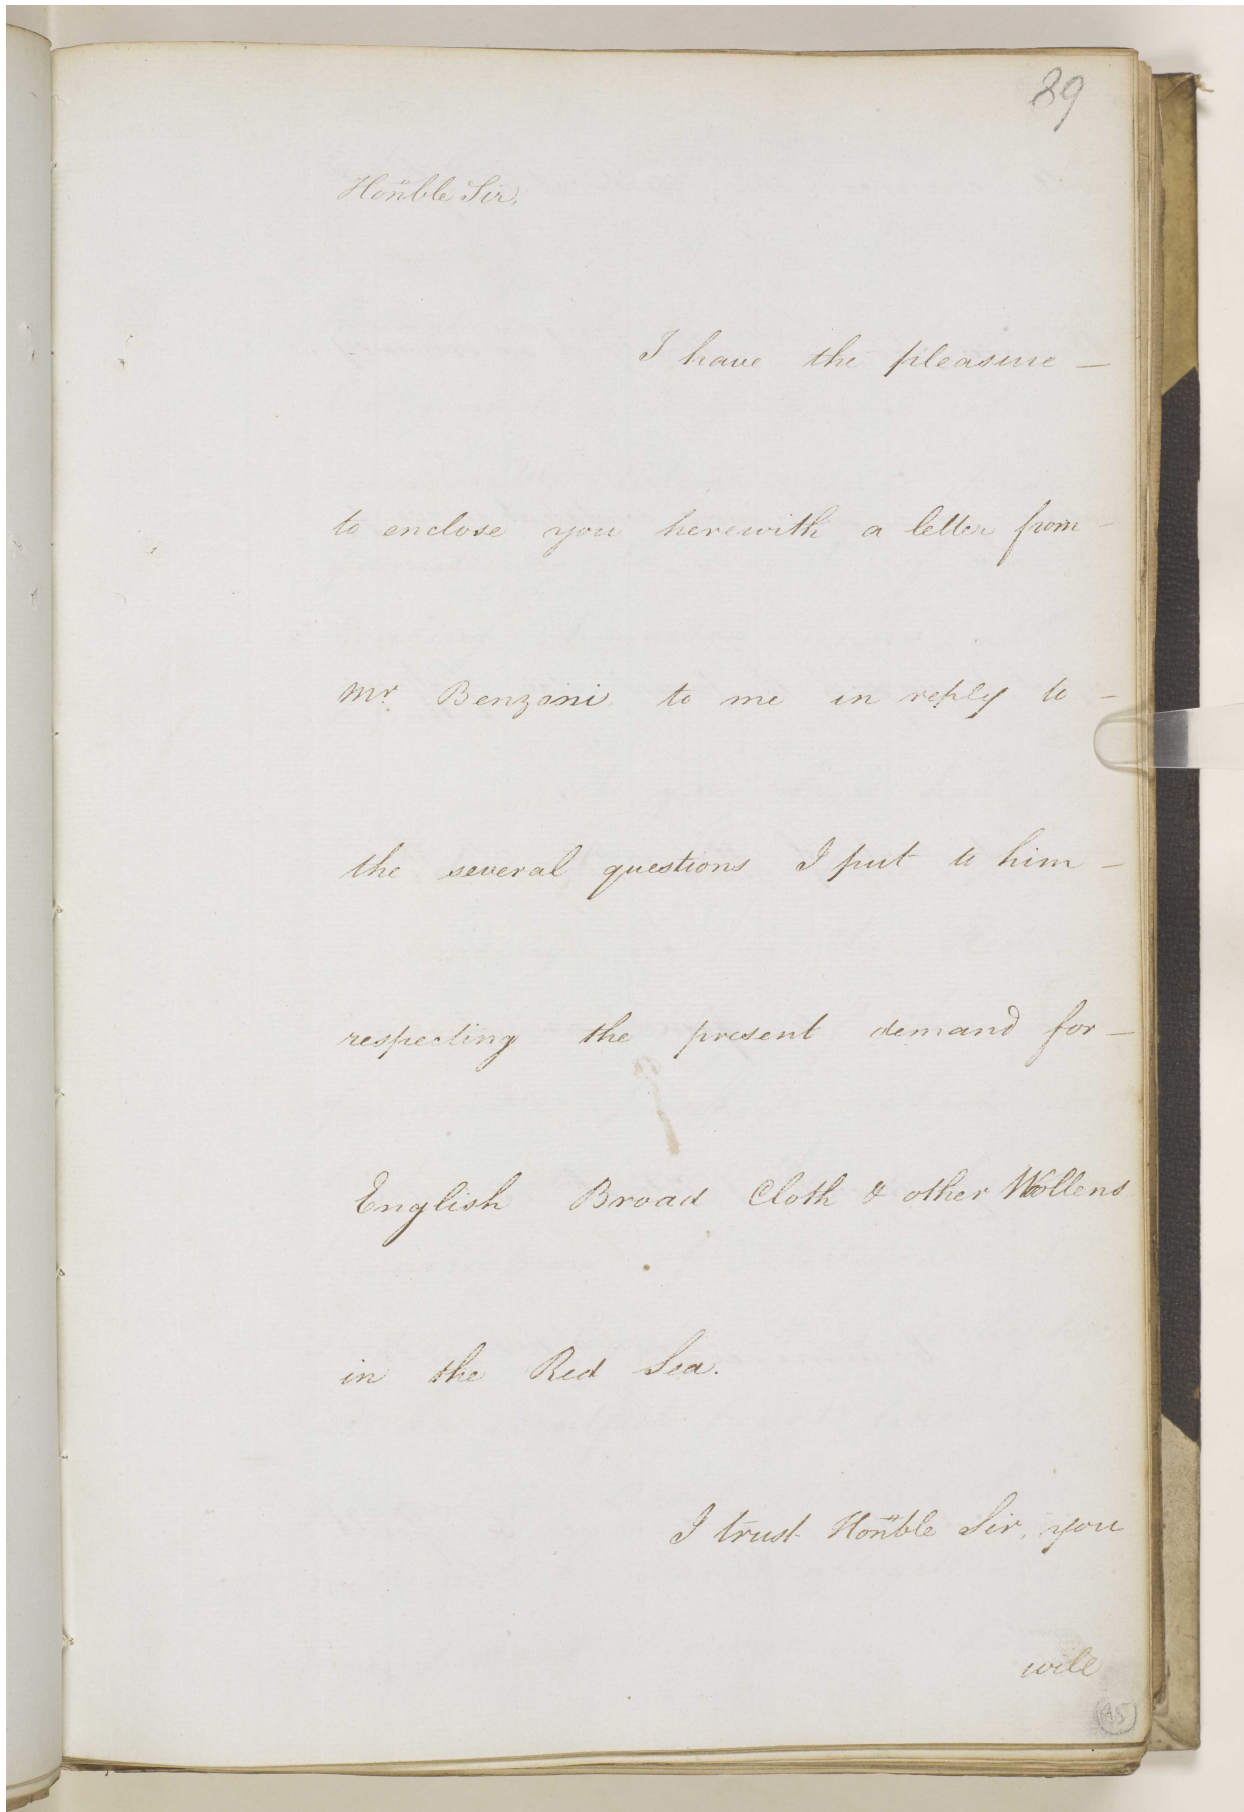 89
Honble Sir,
I have the pleasure —
to enclose you herewith a letter from -
Mr. Benzoni to me in reply to -
the several questions I put to him -
respecting the present demand for —
English Broad Cloth & other Wollens
in the Red Sea.
I trust Honble Sir, you
will